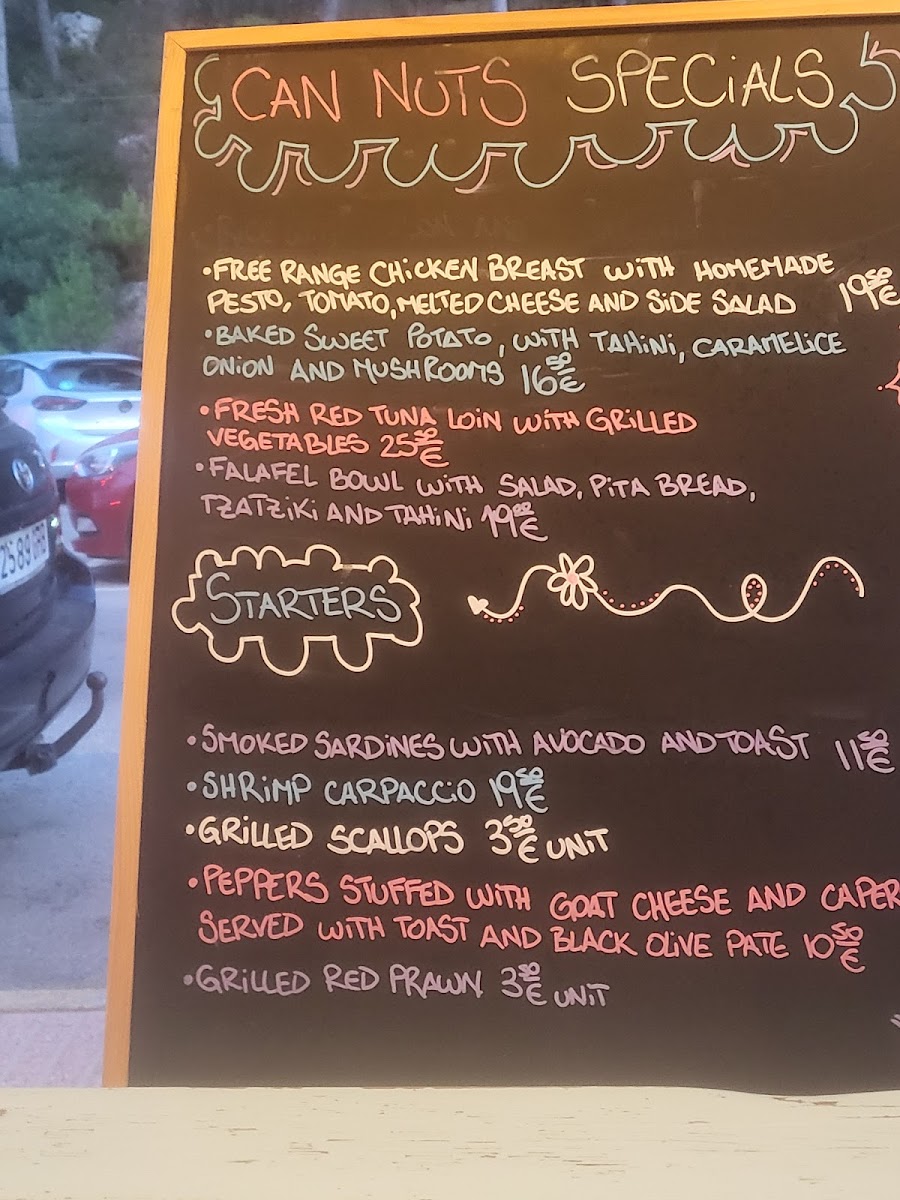 CAN NUTS SPECIALS
•FREE RANGE CHICKEN BREAST WITH HOMEMADE
PESTO, TOMATO, MELTED CHEESE AND SIDE SALAD 19,50€
•BAKED SWEET POTATO, WITH TAHINI, CARAMELICE
ONION AND MUSHROOMS 16,50€
•FRESH RED TUNA LOIN WITH GRILLED
VEGETABLES 25,50€
•FALAFEL BOWL WITH SALAD, PITA BREAD,
TZATZIKI AND TAHINI 19,00€
STARTERS
•SMOKED SARDINES WITH AVOCADO AND TOAST 11,50€
•SHRIMP CARPACCIO 19,50€
•GRILLED SCALLOPS 3,50€ UNIT
•PEPPERS STUFFED WITH GOAT CHEESE AND CAPER
SERVED WITH TOAST AND BLACK OLIVE PATE 10,50€
•GRILLED RED PRAWN 3,50€ UNIT